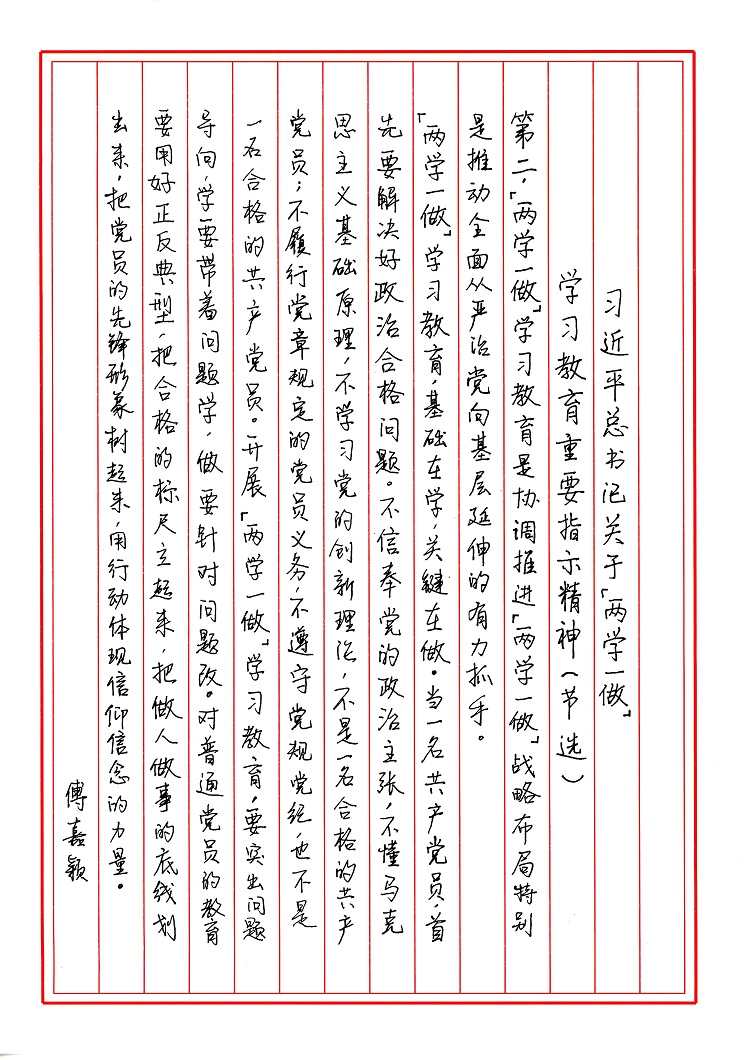 习近平总书记关于「两学一做」
学习教育重要指示精神（节选）
第二，「两学一做」学习教育是协调推进「两学一做」战略布局特别
是推动全面从严治党向基层延伸的有力抓手。
「两学一做」学习教育，基础在学，关键在做。当一名共产党员，首
先要解决好政治合格问题。不信奉党的政治主张，不懂马克
思主义基础原理，不学习党的创新理论，不是一名合格的共产
党员；不履行党章规定的党员义务，不遵守党规党纪，也不是
一名合格的共产党员。开展「两学一做」学习教育，要突出问题
导向，学要带着问题学，做要针对问题改。对普通党员的教育
要用好正反典型，把合格的标尺立起来，把做人做事的底线划
出来，把党员的先锋形象树起来，用行动体现信仰信念的力量。
傅嘉颖